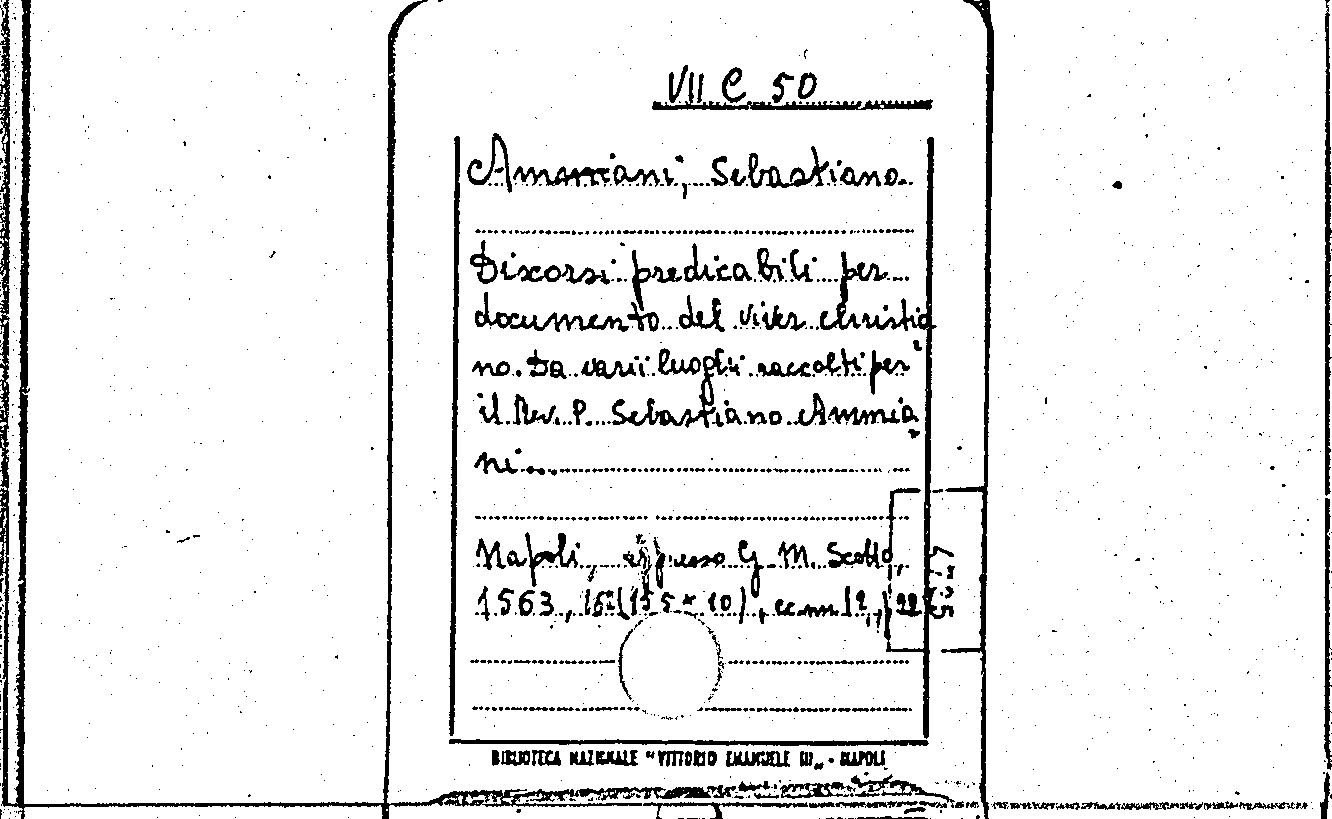 VII C 50
Ammiani, Sebastiano.
Discorsi predicabili per
documento del viver christia
no. Da varii luoghi raccolti per
il Rev. P. Sebastiano Ammia
ni...
Napoli, appresso G. M. Scotto,
1563, 16°(15 5 × 10), cc.nn.
BIBLIOTECA NAZIONALE "VITTORIO EMANUELE III„ - NAPOLI